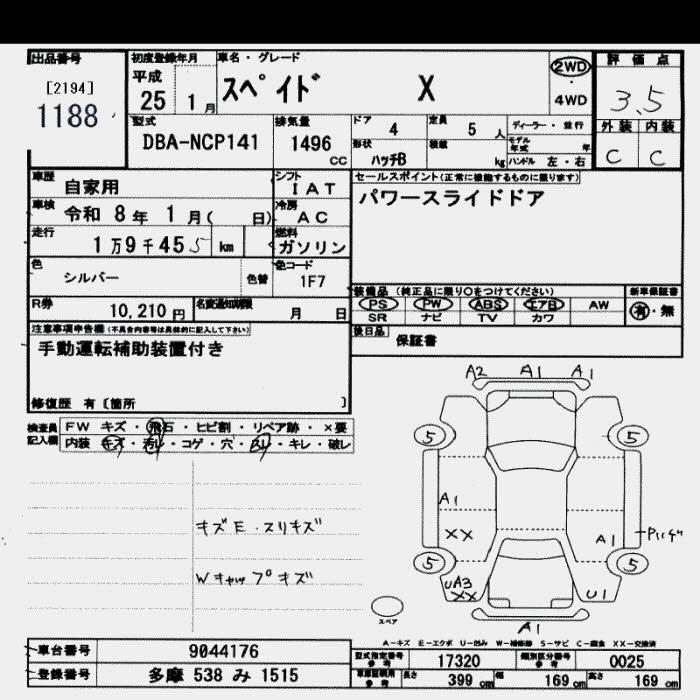 出品番号 初度登録年月 車名・グレード 評価点
[2194] 平成 スペイド X 2WD ・ 4WD 3.5
1188 25 1 月
型式 排気量 ドア 4 定員 5 人 ディーラー・並行 外装 内装
DBA-NCP141 1496 CC 形状 ハッチB 積載 kg モデル年式 年 ハンドル 左・右 C C
車歴 自家用 シフト IAT セールスポイント(正常に機能するものに限ります)
車検 令和 8 年 1 月( 日) 冷房 AC パワースライドドア
走行 1万9千455 km 燃料 ガソリン
色 シルバー 色替 色コード 1F7
装備品 (純正品に限り○をつけてください) 新車保証書
R券 10,210 円 名変通知期限 月 日 PS PW ABS エアB AW 有・無
SR ナビ TV カワ
注意事項申告欄(不具合内容等は具体的に記入して下さい) 後日品 保証書
手動運転補助装置付き
修復歴 有〔箇所 〕
検査員記入欄 FW キズ・飛石・ヒビ割・リペア跡・×要
内装 キズ・汚レ・コゲ・穴・スレ・キレ・破レ
A2 A1 A1
5 5
A1
キズE・スリキズ
XX A1
Wキャップキズ
5 5
UA3 XX U1
スペア
A1
A-キズ E-エクボ U-凹み W-補修跡 S-サビ C-腐食 XX-交換済
車台番号 9044176 型式指定番号 参考 17320 類別区分番号 参考 0025
登録番号 多摩 538 み 1515 車庫証明用 参考 長さ 399 cm 幅 169 cm 高さ 169 cm